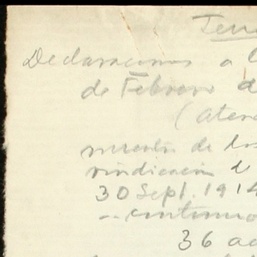 Declaraciones a l
de Febrero d
(Aten
muerte de los
vindicación d
30 Sept. 1914
continuo
36 ac